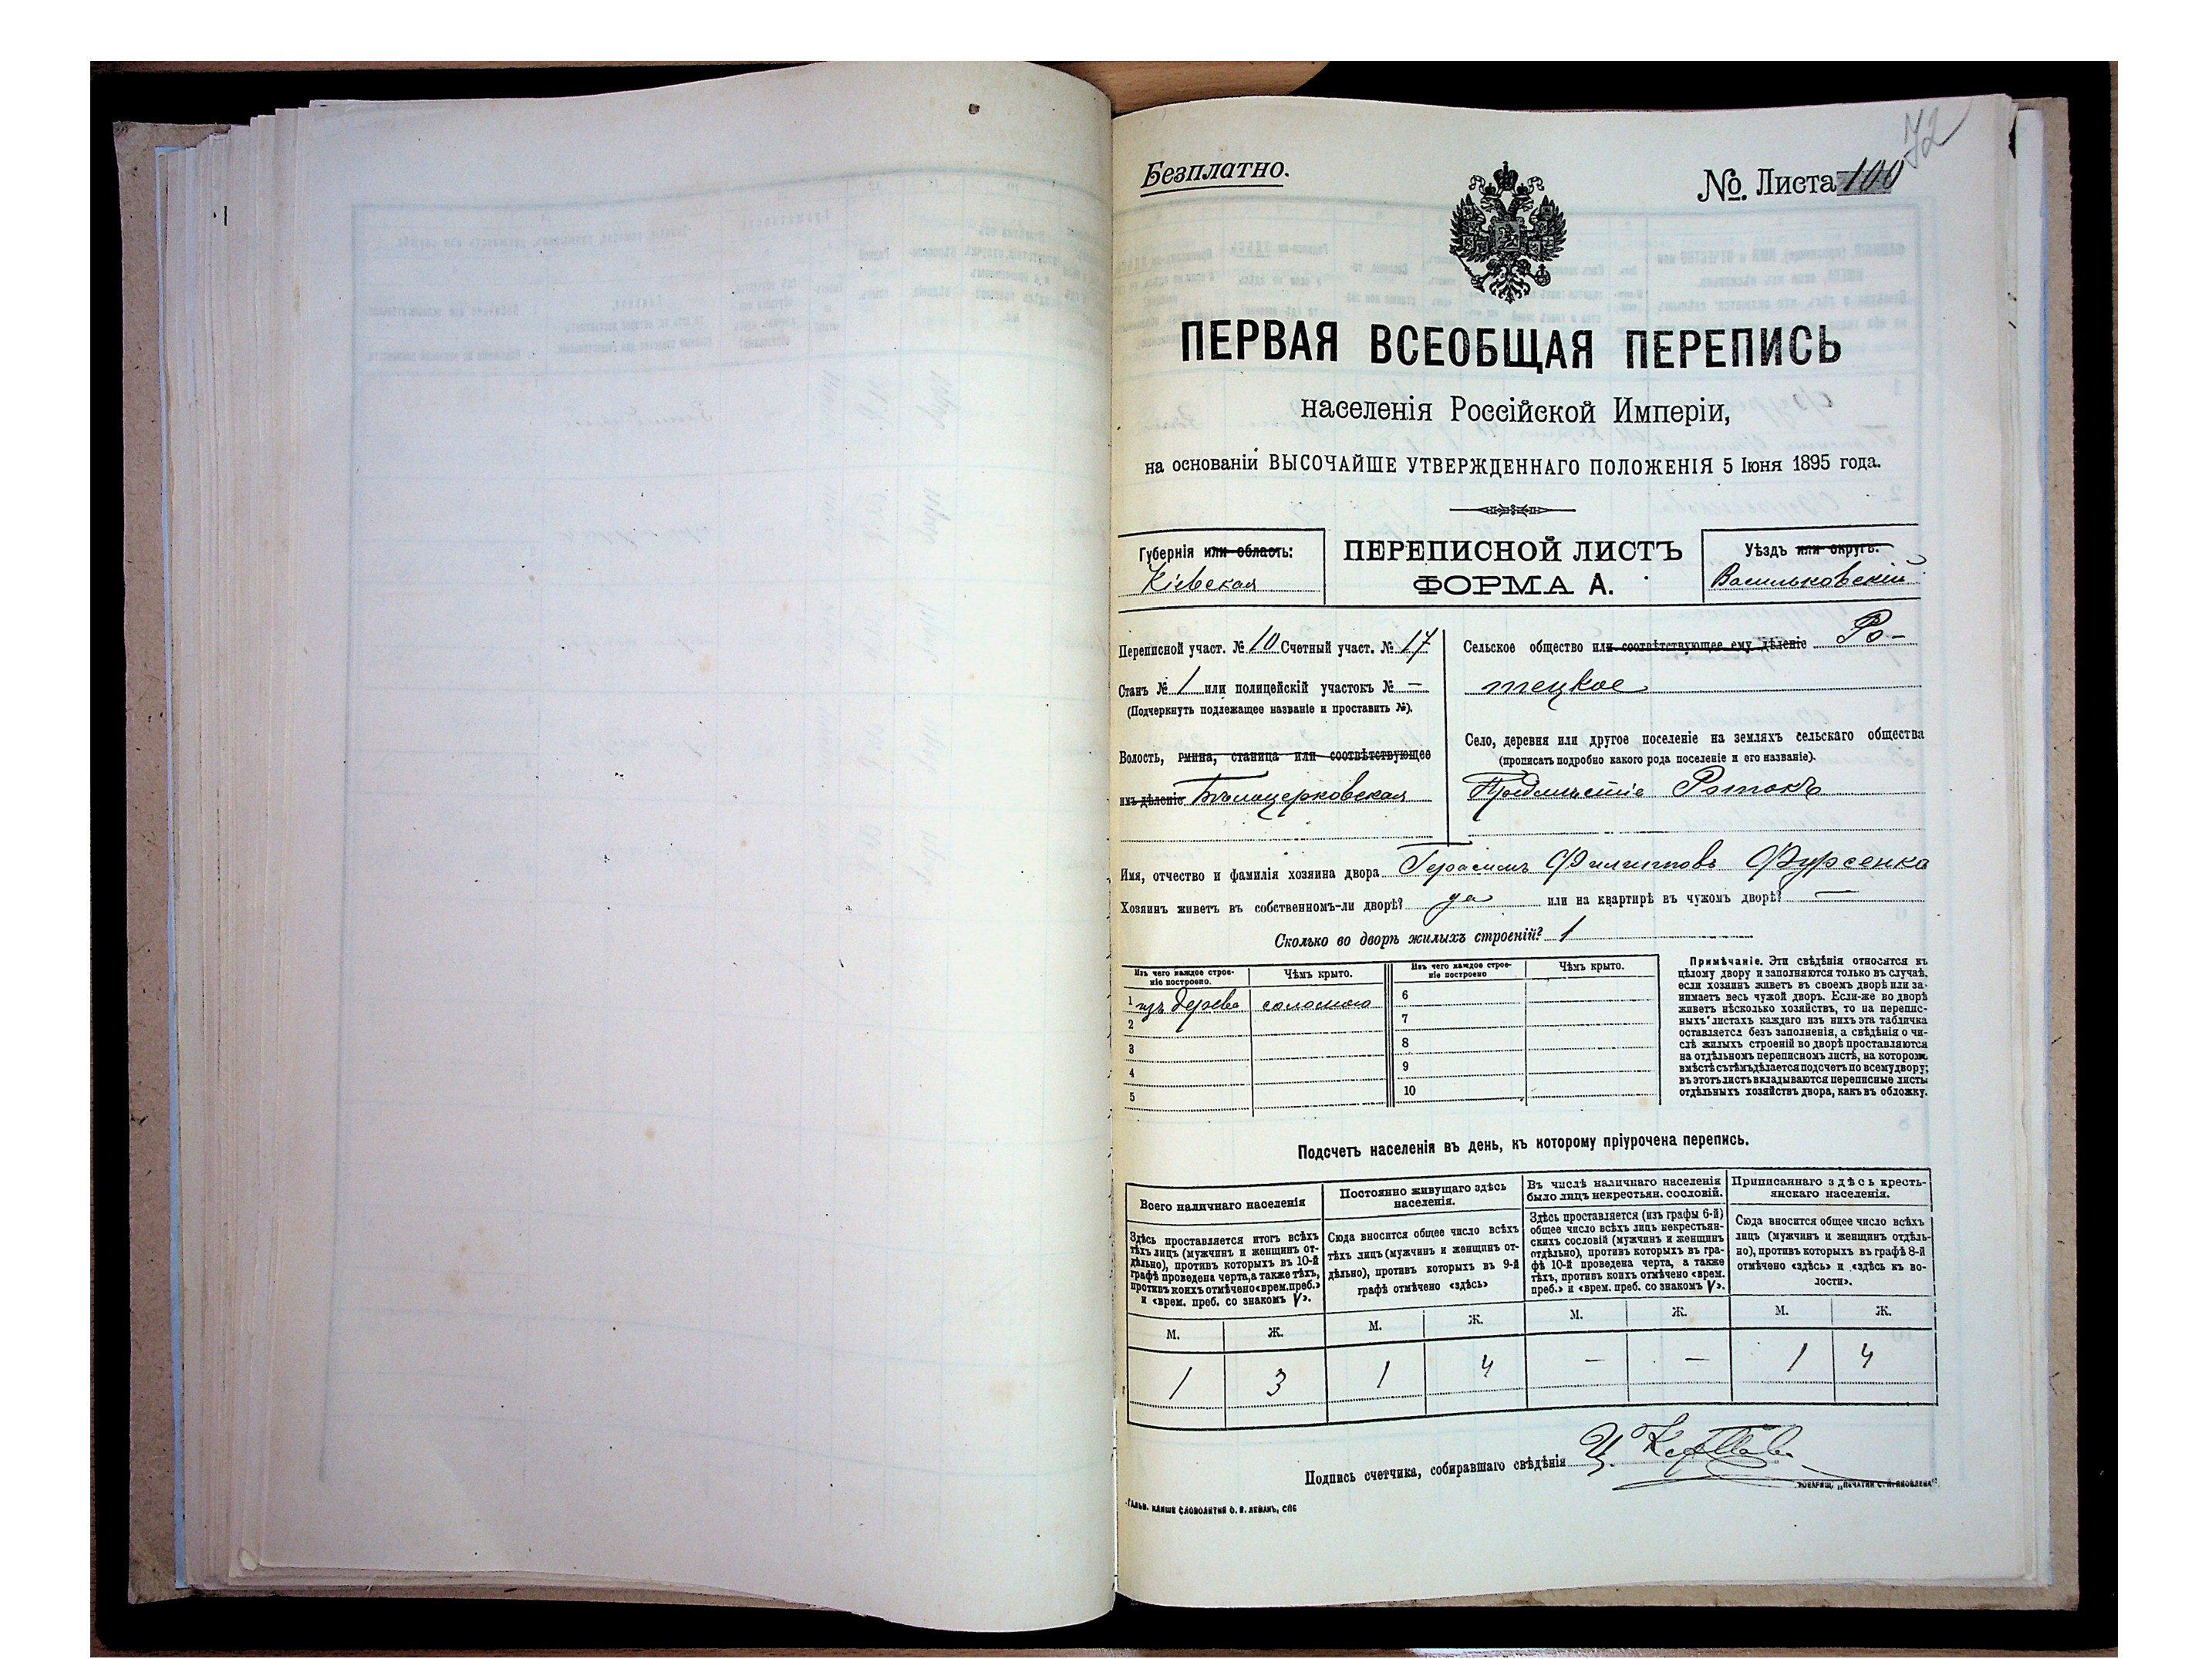 72
Безплатно.
№. Листа 100
ПЕРВАЯ ВСЕОБЩАЯ ПЕРЕПИСЬ
населенія Россійской Имперіи,
на основаніи ВЫСОЧАЙШЕ УТВЕРЖДЕННАГО ПОЛОЖЕНІЯ 5 Іюня 1895 года.
Губернія или область:
Кіевская
ПЕРЕПИСНОЙ ЛИСТЪ
ФОРМА А.
Уѣздъ или округъ:
Васильковскій
Переписной участ. № 10 Счетный участ. № 17
Станъ № 1 или полицейскій участокъ № —
(Подчеркнуть подлежащее названіе и проставить №).
Волость, гмина, станица или соотвѣтствующее
имъ дѣленіе Бѣлоцерковская
Сельское общество или соотвѣтствующее ему дѣленіе Ро-
тецкое
Село, деревня или другое поселеніе на земляхъ сельскаго общества
(прописать подробно какого рода поселеніе и его названіе).
Предмѣстіе Ротокъ
Имя, отчество и фамилія хозяина двора Герасимъ Филипповъ Фурсенко
Хозяинъ живетъ въ собственномъ-ли дворѣ? да или на квартирѣ въ чужомъ дворѣ? —
Сколько во дворѣ жилыхъ строеній? 1
Изъ чего каждое строе-
ніе построено.
Чѣмъ крыто.
Изъ чего каждое строе-
ніе построено
Чѣмъ крыто.
1 изъ дерева соломою
2
3
4
5
6
7
8
9
10
Примѣчаніе. Эти свѣдѣнія относятся къ
цѣлому двору и заполняются только въ случаѣ,
если хозяинъ живетъ въ своемъ дворѣ или за-
нимаетъ весь чужой дворъ. Если-же во дворѣ
живетъ нѣсколько хозяйствъ, то на перепис-
ныхъ листахъ каждаго изъ нихъ эта табличка
оставляется безъ заполненія, а свѣдѣнія о чи-
слѣ жилыхъ строеній во дворѣ проставляются
на отдѣльномъ переписномъ листѣ, на которомъ
вмѣстѣ съ тѣмъ дѣлается подсчетъ по всему двору;
въ этотъ листъ вкладываются переписные листы
отдѣльныхъ хозяйствъ двора, какъ въ обложку.
Подсчетъ населенія въ день, къ которому пріурочена перепись.
Всего наличнаго населенія
Здѣсь проставляется итогъ всѣхъ
тѣхъ лицъ (мужчинъ и женщинъ от-
дѣльно), противъ которыхъ въ 10-й
графѣ проведена черта, а также тѣхъ,
противъ коихъ отмѣчено «врем. преб.»
и «врем. преб. со знакомъ V».
Постоянно живущаго здѣсь
населенія.
Сюда вносится общее число всѣхъ
тѣхъ лицъ (мужчинъ и женщинъ от-
дѣльно), противъ которыхъ въ 9-й
графѣ отмѣчено «здѣсь»
Въ числѣ наличнаго населенія
было лицъ некрестьян. сословій.
Здѣсь проставляется (изъ графы 6-й)
общее число всѣхъ лицъ некрестьян-
скихъ сословій (мужчинъ и женщинъ
отдѣльно), противъ которыхъ въ гра-
фѣ 10-й проведена черта, а также
тѣхъ, противъ коихъ отмѣчено «врем.
преб.» и «врем. преб. со знакомъ V».
Приписаннаго здѣсь кресть-
янскаго населенія.
Сюда вносится общее число всѣхъ
лицъ (мужчинъ и женщинъ отдѣль-
но), противъ которыхъ въ графѣ 8-й
отмѣчено «здѣсь» и «здѣсь къ во-
лости».
М. Ж. М. Ж. М. Ж. М. Ж.
1 3 1 4 — — 1 4
Подпись счетчика, собиравшаго свѣдѣнія
ГАЛЬВ. КЛИШЕ СЛОВОЛИТНИ О. И. ЛЕМАНЪ, СПБ
ТОВАРИЩ. „ПЕЧАТНИ С. П. ЯКОВЛЕВА“